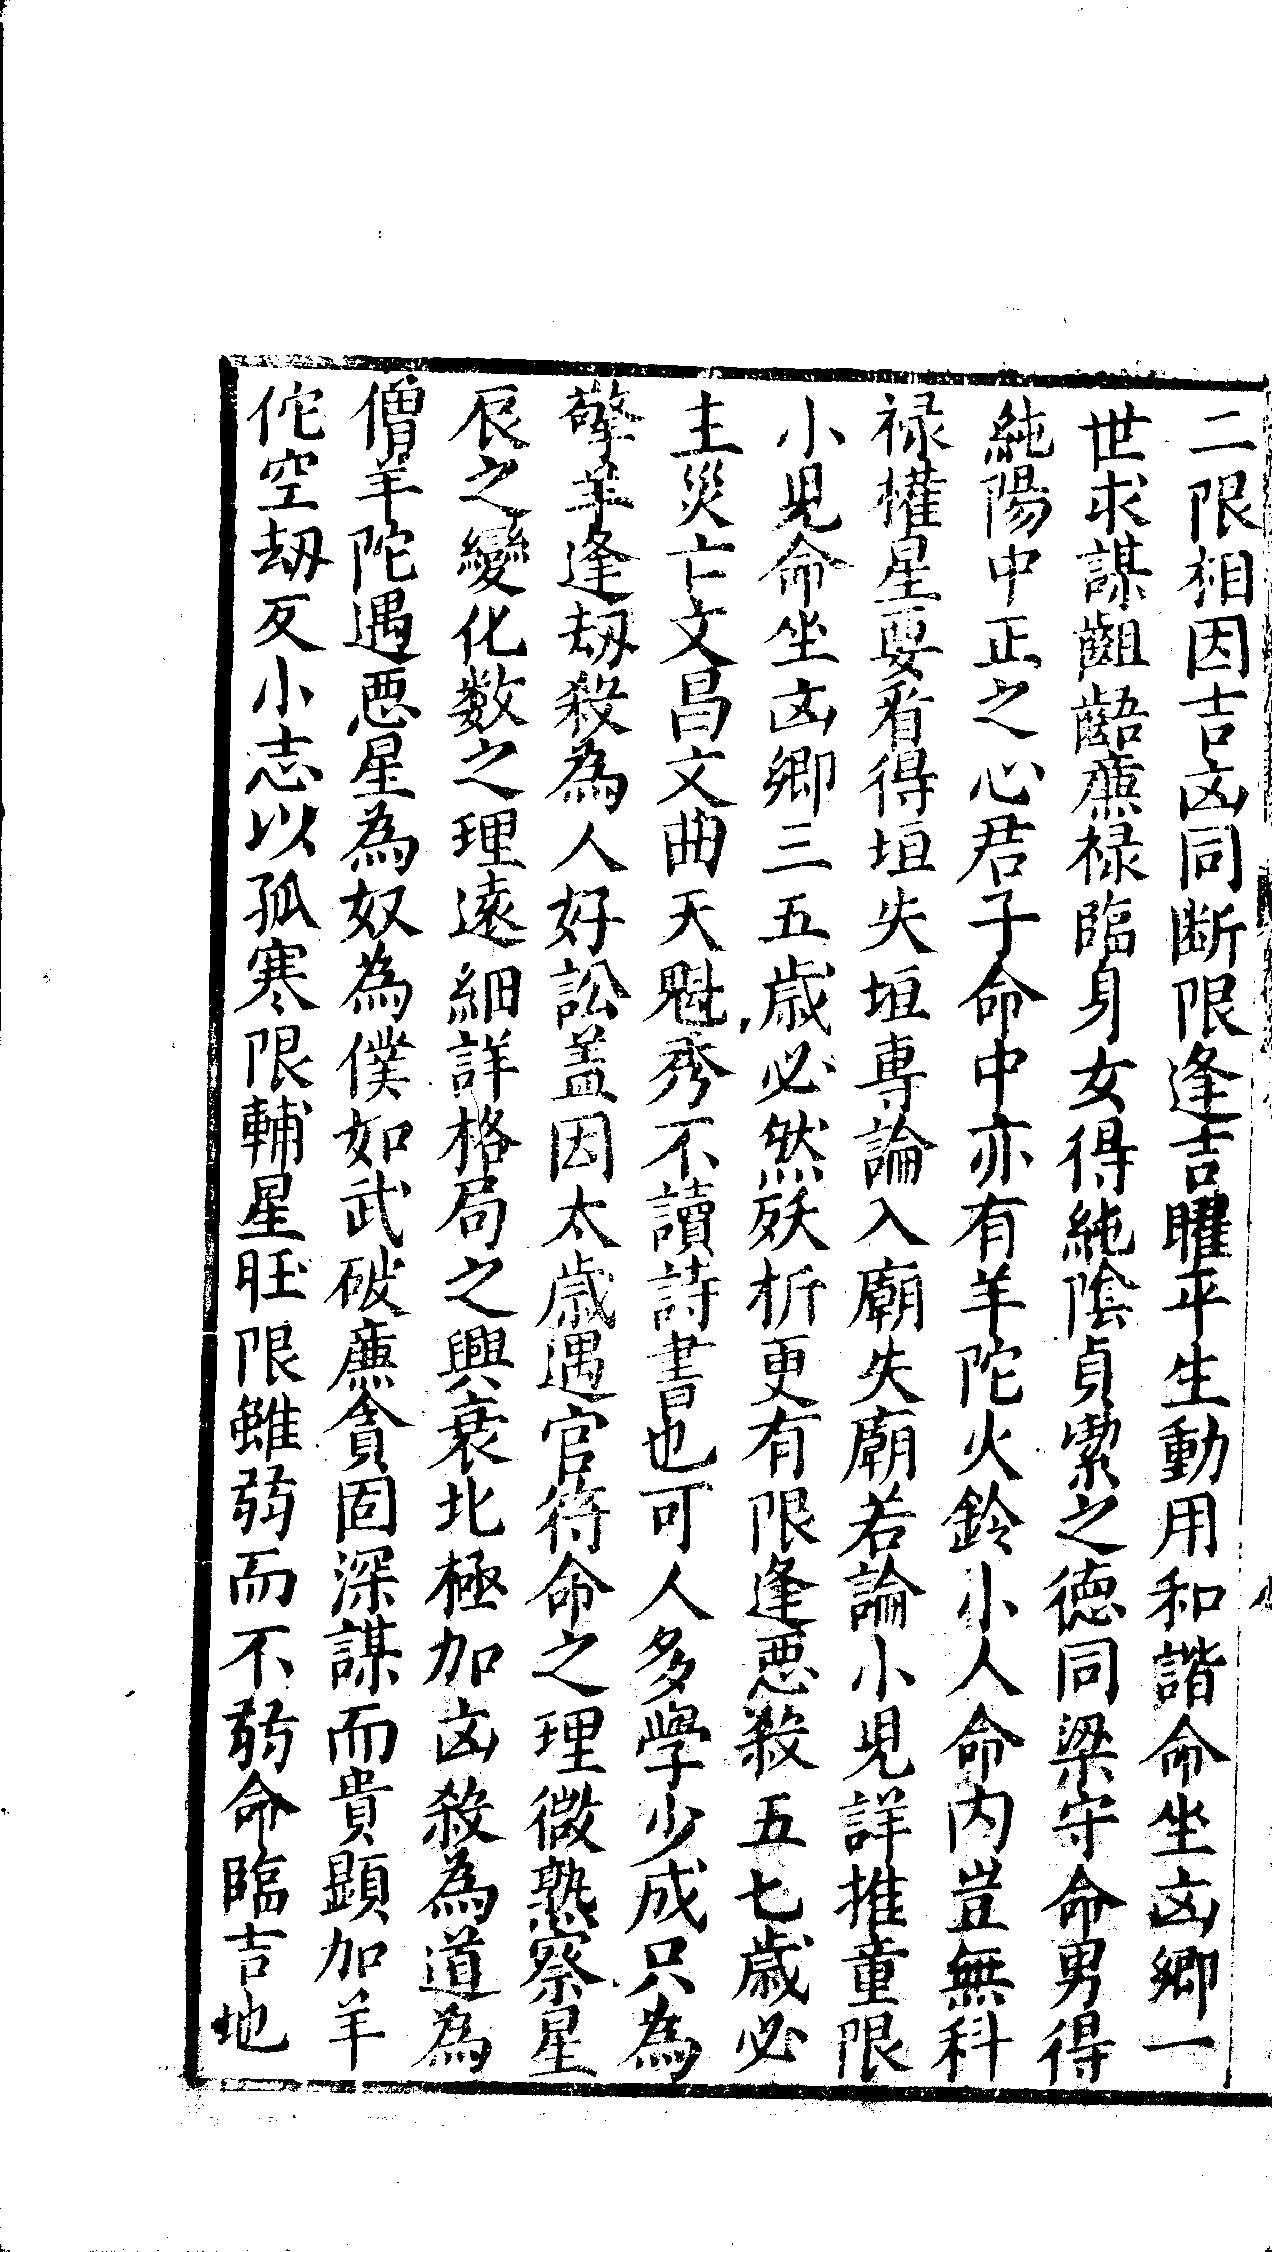 二限相因吉凶同断限逢吉曜平生動用和諧命坐凶郷一
世求謀齟齬廉禄臨身女得純隂貞㓗之德同梁守命男得
純陽中正之心君子命中亦有羊陀火鈴小人命内豈無科
禄權星要看得垣失垣專論入廟失廟若論小児詳推童限
小児命坐凶郷三五歳必然殀折更有限逢惡殺五七歳必
主災亡文昌文曲天魁秀不讀詩書也可人多學少成只為
擎羊逢刼殺為人好訟盖因太歳遇官符命之理微熟察星
辰之變化数之理遠細詳格局之興衰北極加凶殺為道為
僧羊陀遇惡星為奴為僕如武破廉貪固深謀而貴顕加羊
佗空刼反小志以孤寒限輔星旺限雖弱而不弱命臨吉地